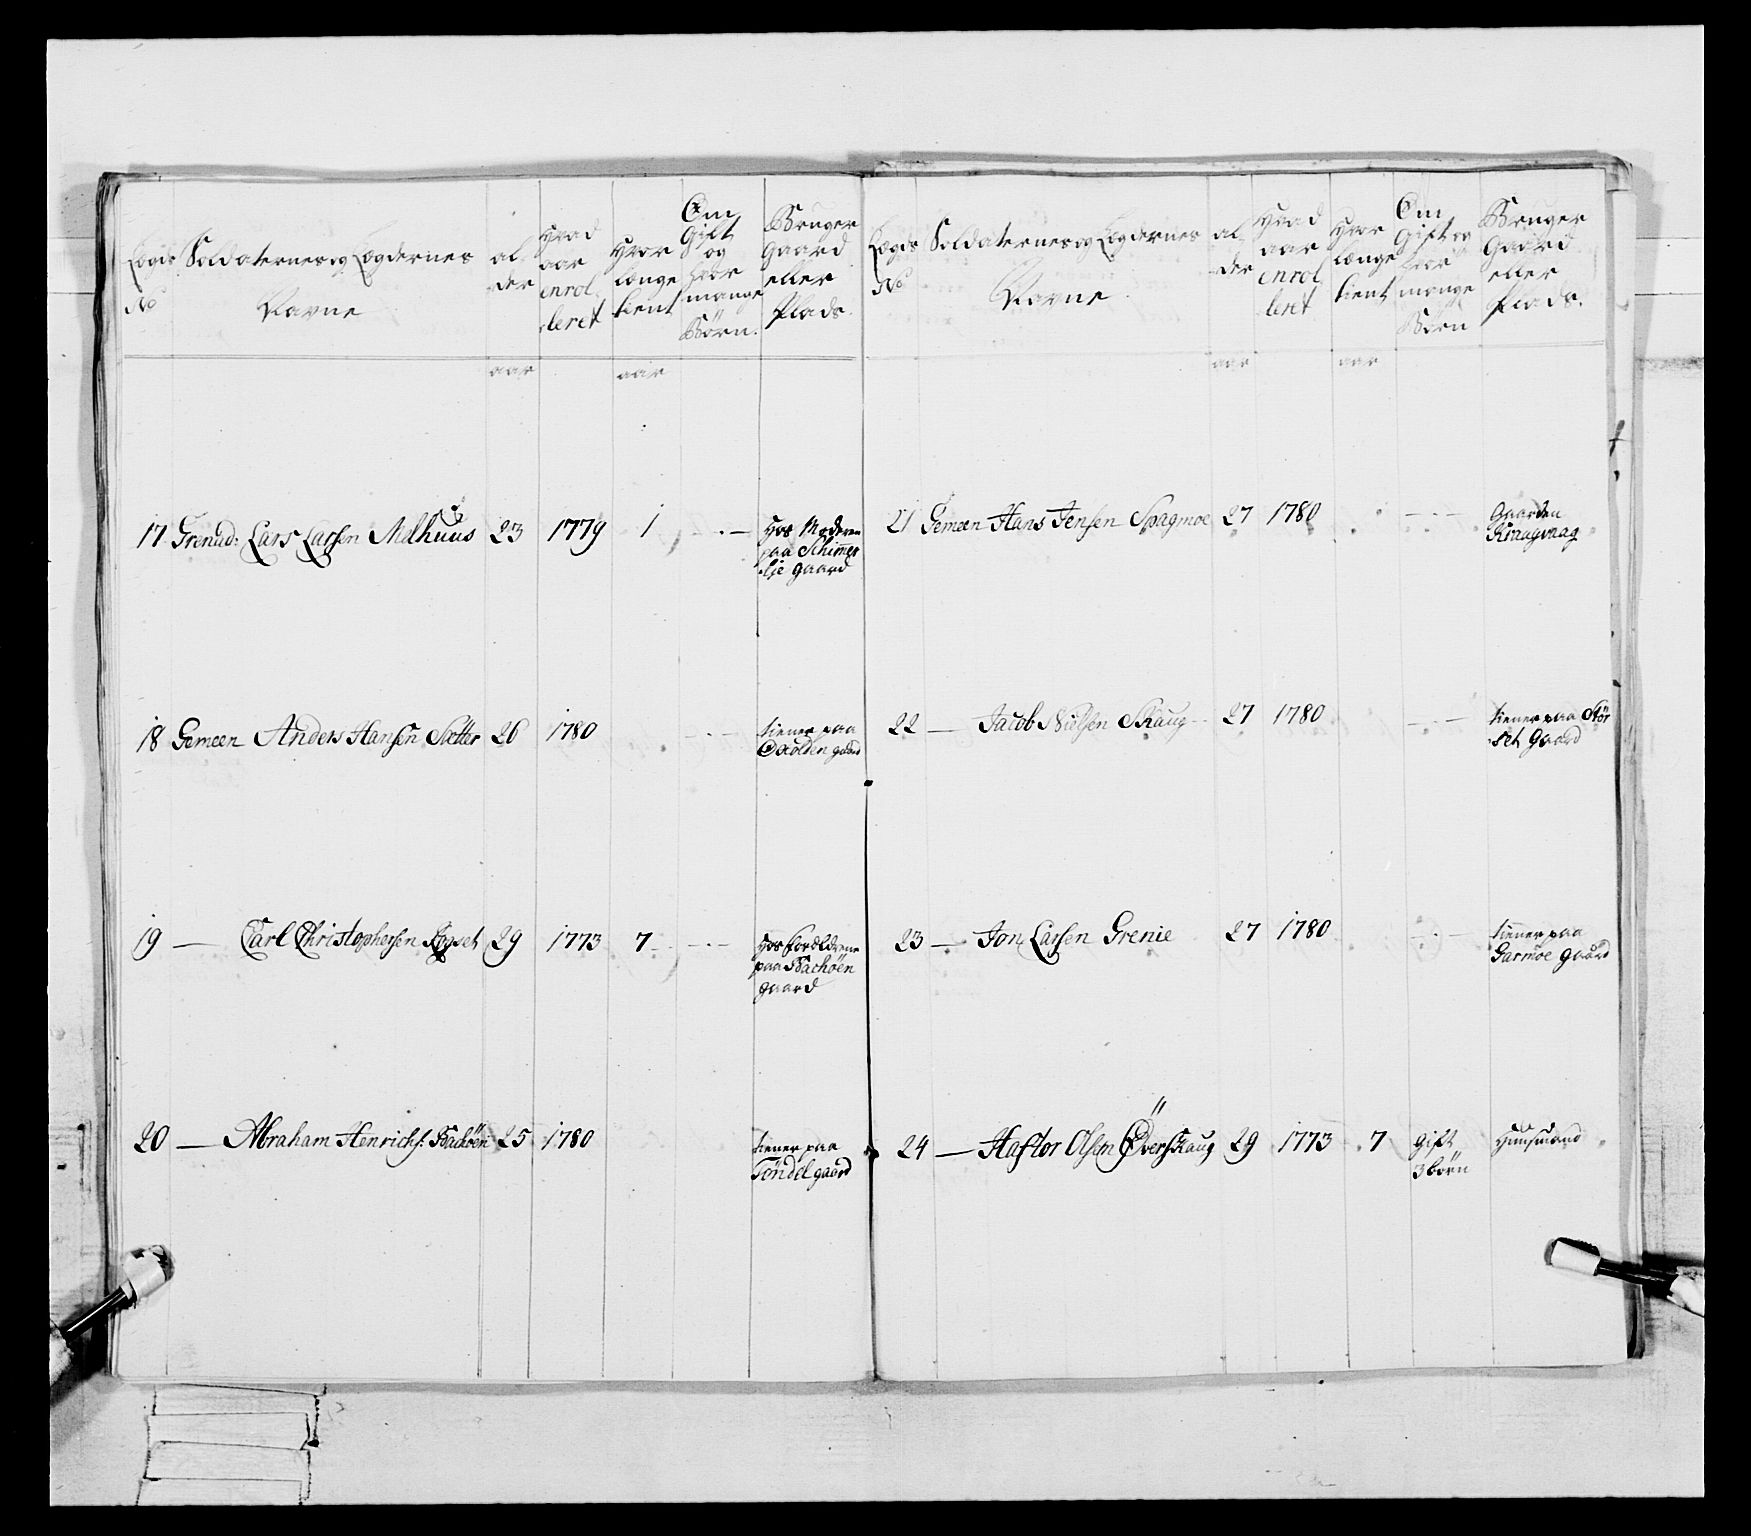 Legds No
Soldaternes og Legdernes Navne
al-der
Hvad aar enrolleret
Hvor længe tient
Om Gift og hvor mange Börn.
Bruger Gaard eller Plads.
aar
aar
17 Grenad: Lars Larsen Melhuus 23 1779 1 Hos Moderen
paa
gaard
18 Gemeen Anders Hansen Sætter 26 1780 tiener paa
gaard
19 — Carl Christophersen 29 1773 7 Hos Forældrene
paa Bachöen
gaard
20 — Abraham Henrichs: Bachöen 25 1780 tiener paa
Töndel gaard
Legds No
Soldaternes og Legdernes Navne
al-der
Hvad aar enrolleret
Hvor længe tient
Om Gift og hvor mange Börn
Bruger Gaard eller Plads.
aar
aar
21 Gemeen Hans Jensen Spagmoe 27 1780 Gaarden
Kraagvaag
22 — Jacob Nielsen Skaug 27 1780 tiener paa Stör
set Gaard
23 — Jon Larsen Grenie 27 1780 tiener paa
Garmoe Gaard
24 — Haftor Olsen Överskaug 29 1773 7 gift Huusmand
3 börn